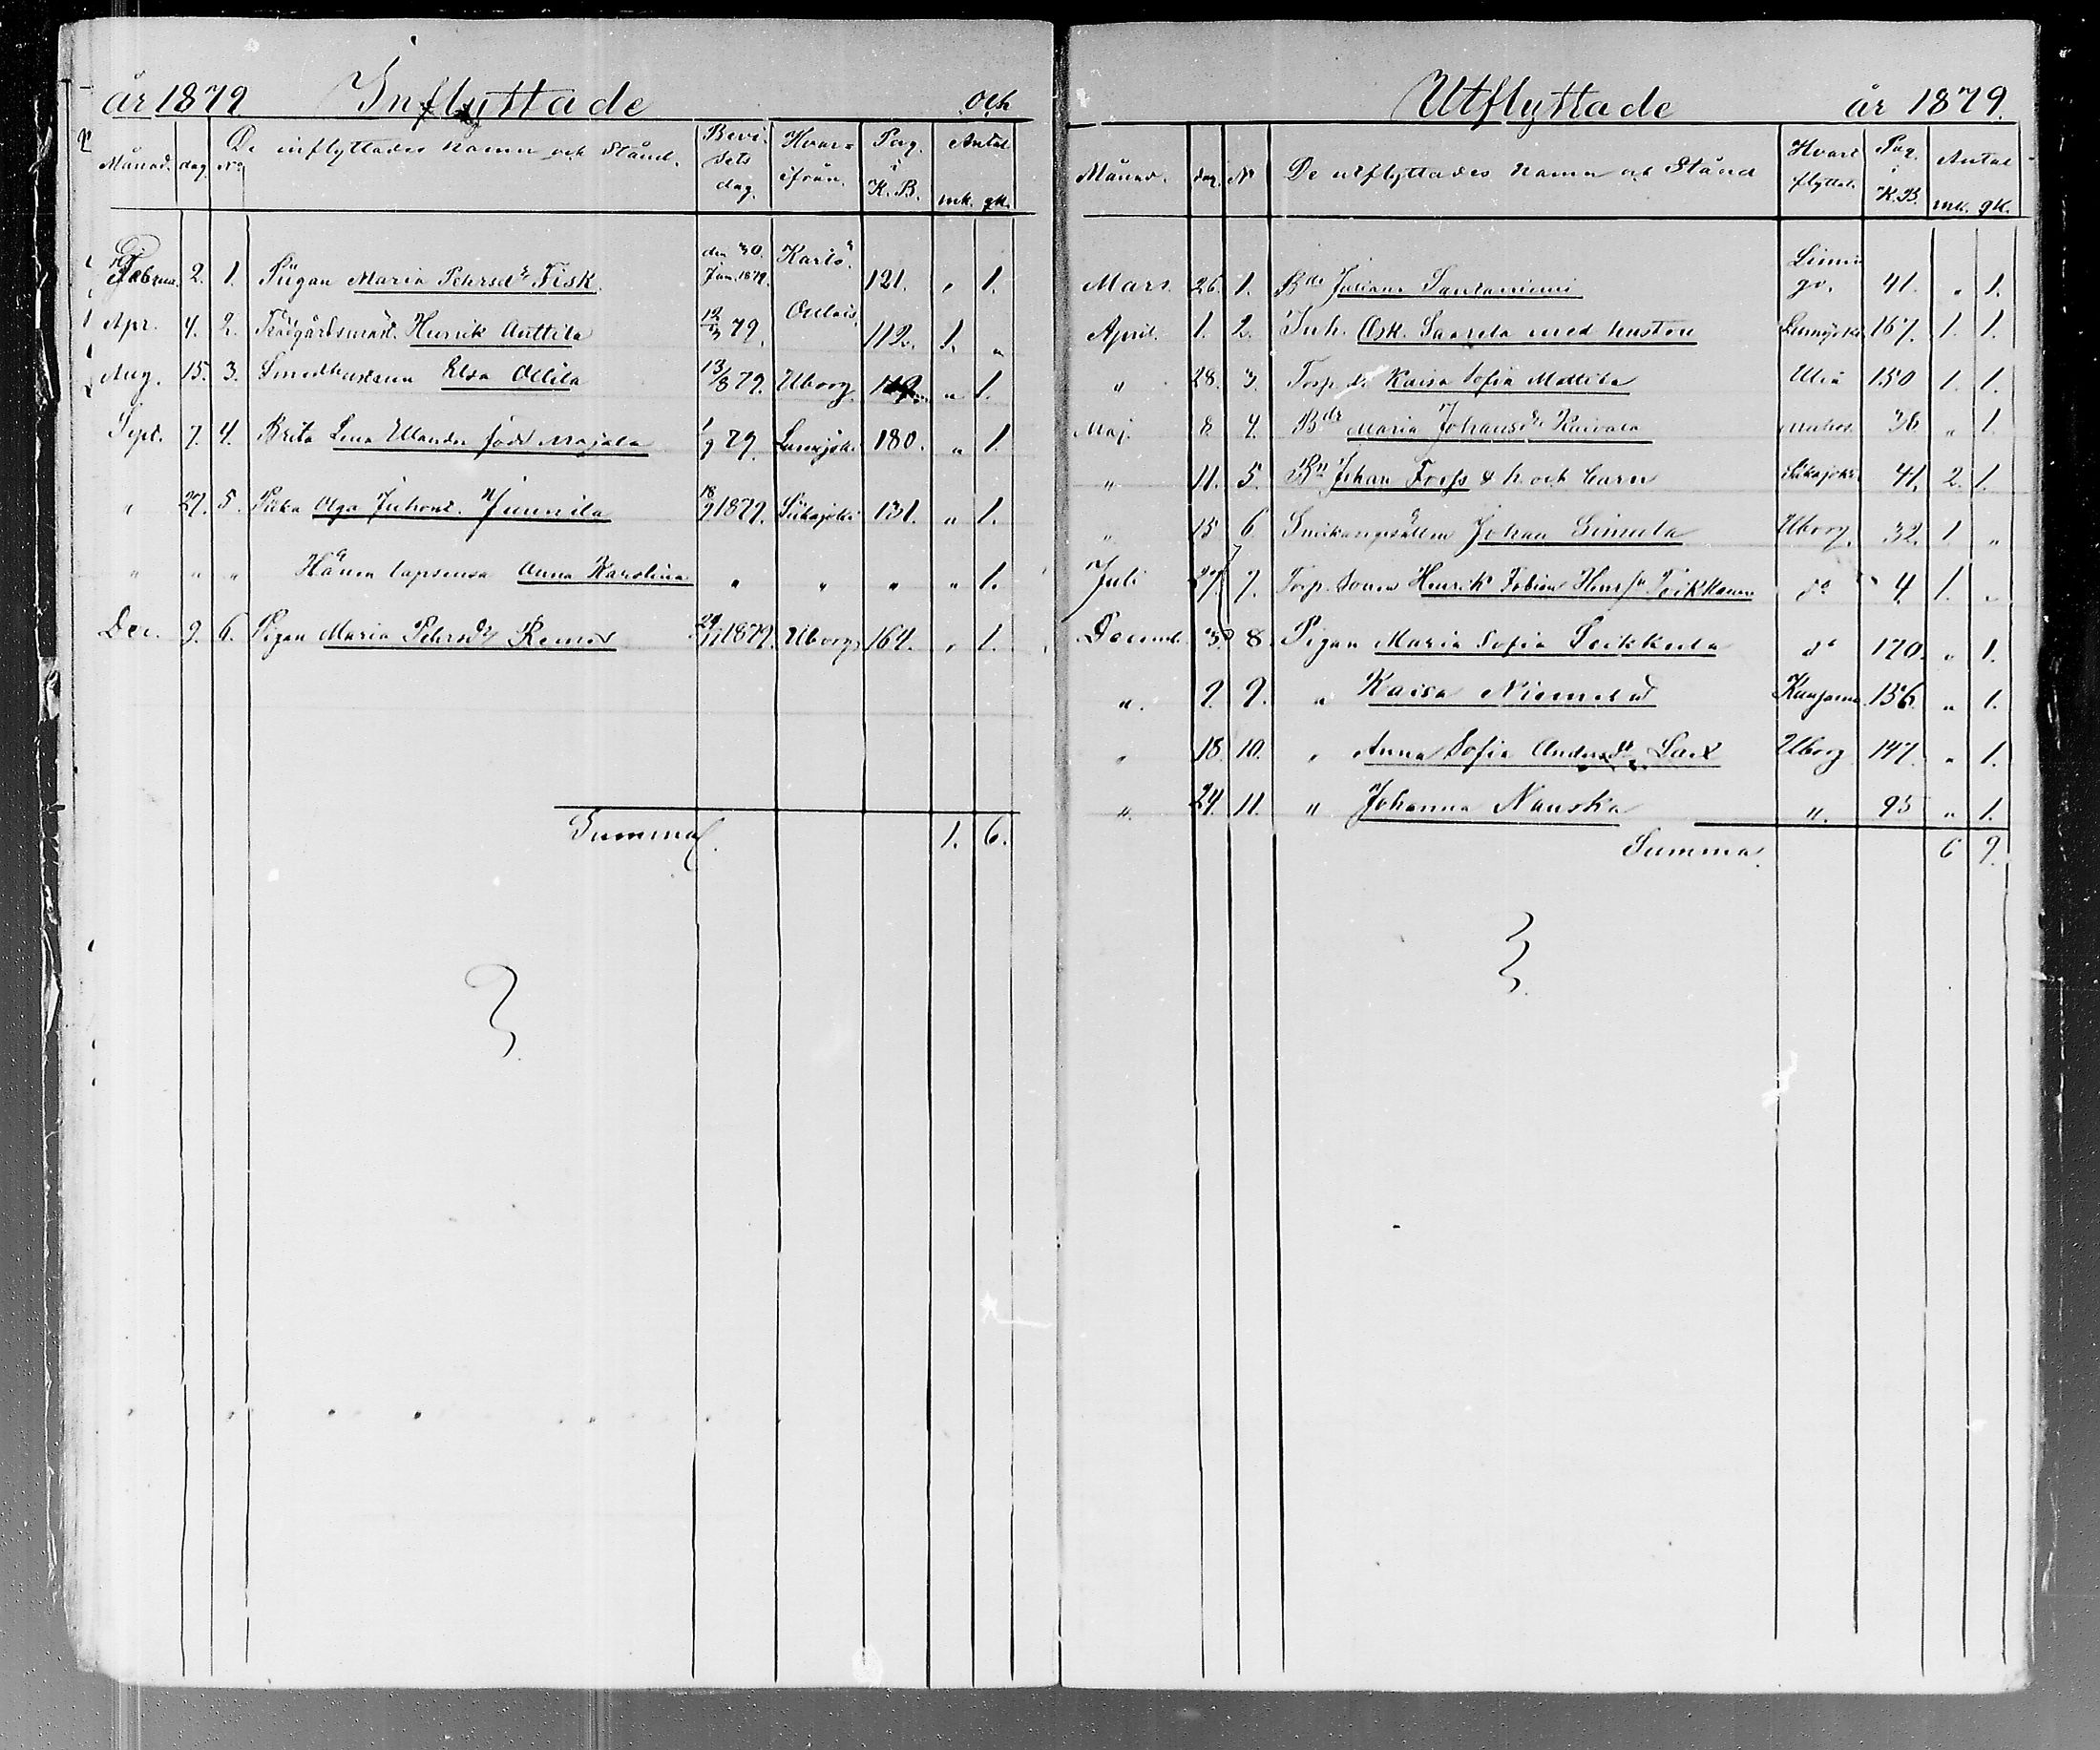 år 1879. Inflyttade och
Månad. dag. No. De inflyttades namn och Stånd. Bevisets dag. Hvarifrån. Pag. i K.B. Antal mk. qk.
Februa. 2. 1. Piigan Maria Pehrsdr Fisk. den 30. Jan. 1879. Karlö. 121. „ 1.
Apr. 4. 2. Henrik Anttila 12/3 79. Oulais. 112. 1. „
Aug. 15. 3. Smedhustrun Elsa Ollila 13/8 79. Uborg. „ 1.
Sept. 7. 4. Brita Lena född Majala 1/9 79. Lumijoki 180. „ 1.
„ 27. 5. Piika Olga Juhont. Junnila 18/9 1879. Siikajoki 131. „ 1.
„ „ „ Hänen lapsensa Anna Karolina „ „ „ „ 1.
Dec. 9. 6. Pigan Maria Pehrsdr Remes 29/11 1879. Uborg 164. „ 1.
Summa. 1. 6.
Utflyttade år 1879.
Månad. dag. No De utflyttades namn och Stånd Hvart flyttat. Pag. i K.B. Antal mk. qk.
Mars. 26. 1. Bdr Juliana Santaniemi Limingo. 41. „ 1.
April. 1. 2. Inh. Saarela med hustru Lumijoki 167. 1. 1.
„ 28. 3. Torp. Kaisa Sofia Mattila 150 1. 1.
Maj. 8. 4. Bdr Maria Johansdr Muhos. 36. „ 1.
„ 11. 5. Bn Johan Forss & h. och barn Siikajoki 41. 2. 1.
„ 15 6. Johan Simula Uborg. 32. 1 „
Juli 27. 7. Torp. sonen Henrik Tobias do 4. 1. „
Decemb. 3. 8. Pigan Maria Sofia Leikkula do 170. „ 1.
„ 9. 9. „ Kaisa Niemelä 136. „ 1.
„ 18. 10. „ Anna Sofia Andersdr Uborg 147. „ 1.
„ 24. 11. „ Johanna Nauska „ 95 „ 1.
Summa. 6 9.